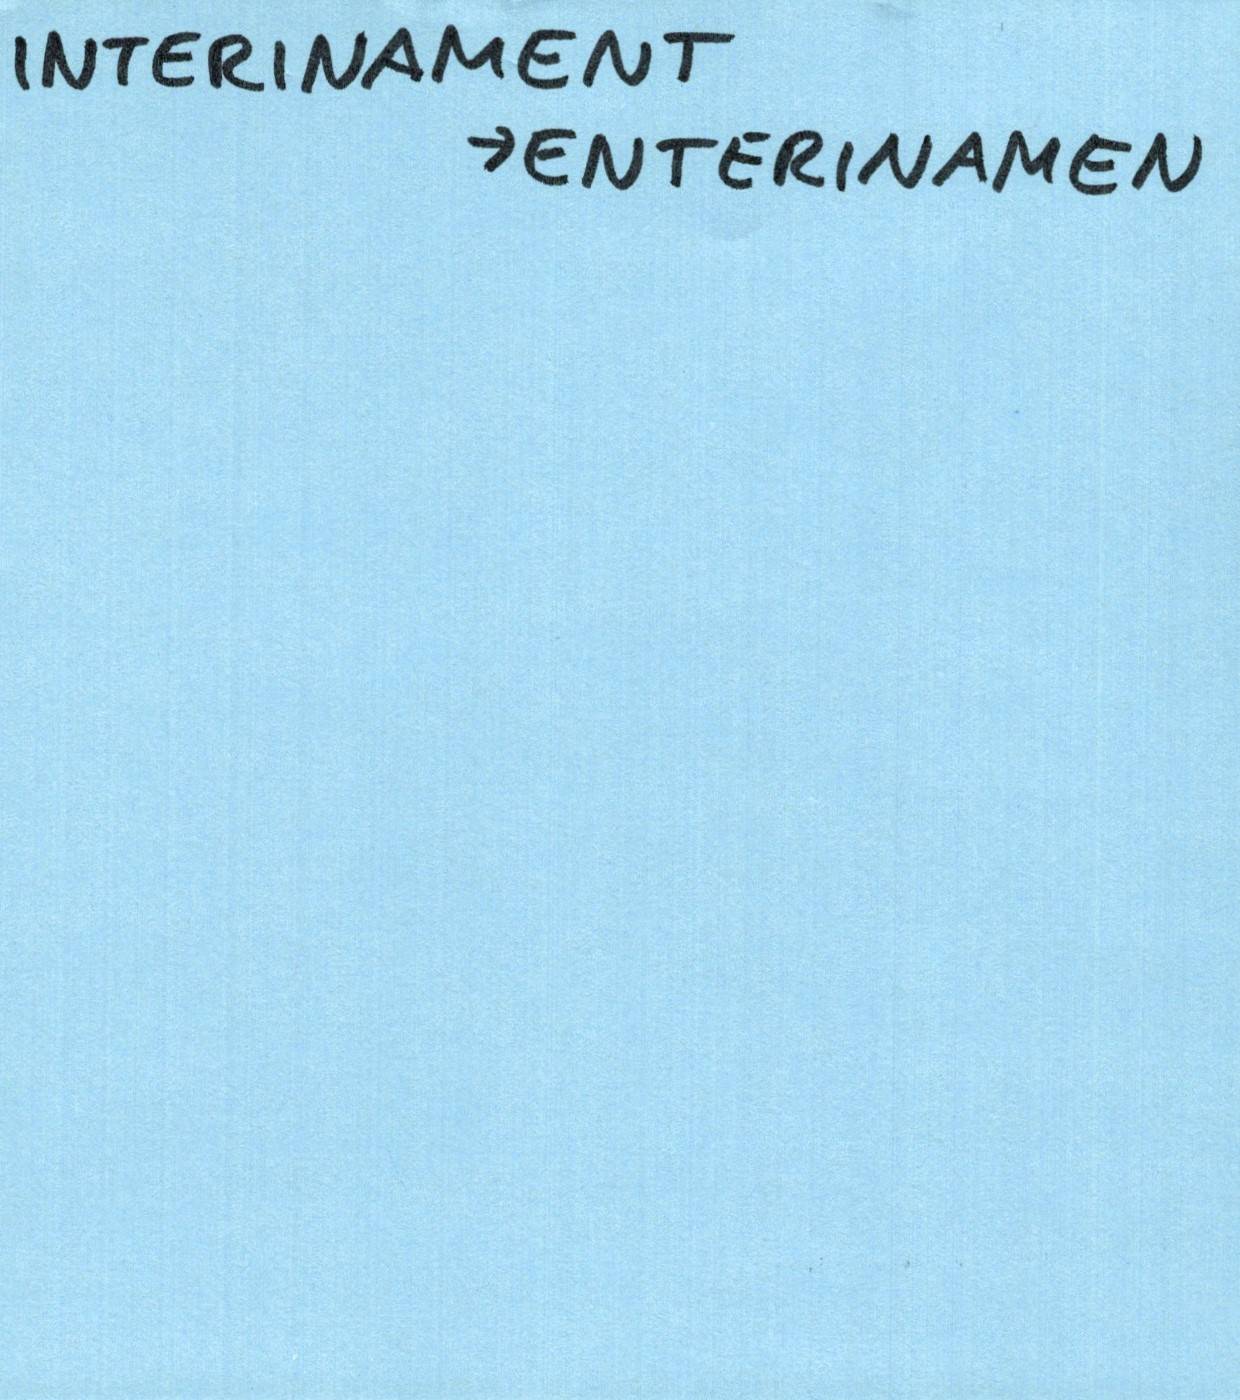 INTERINAMENT
→ENTERINAMEN